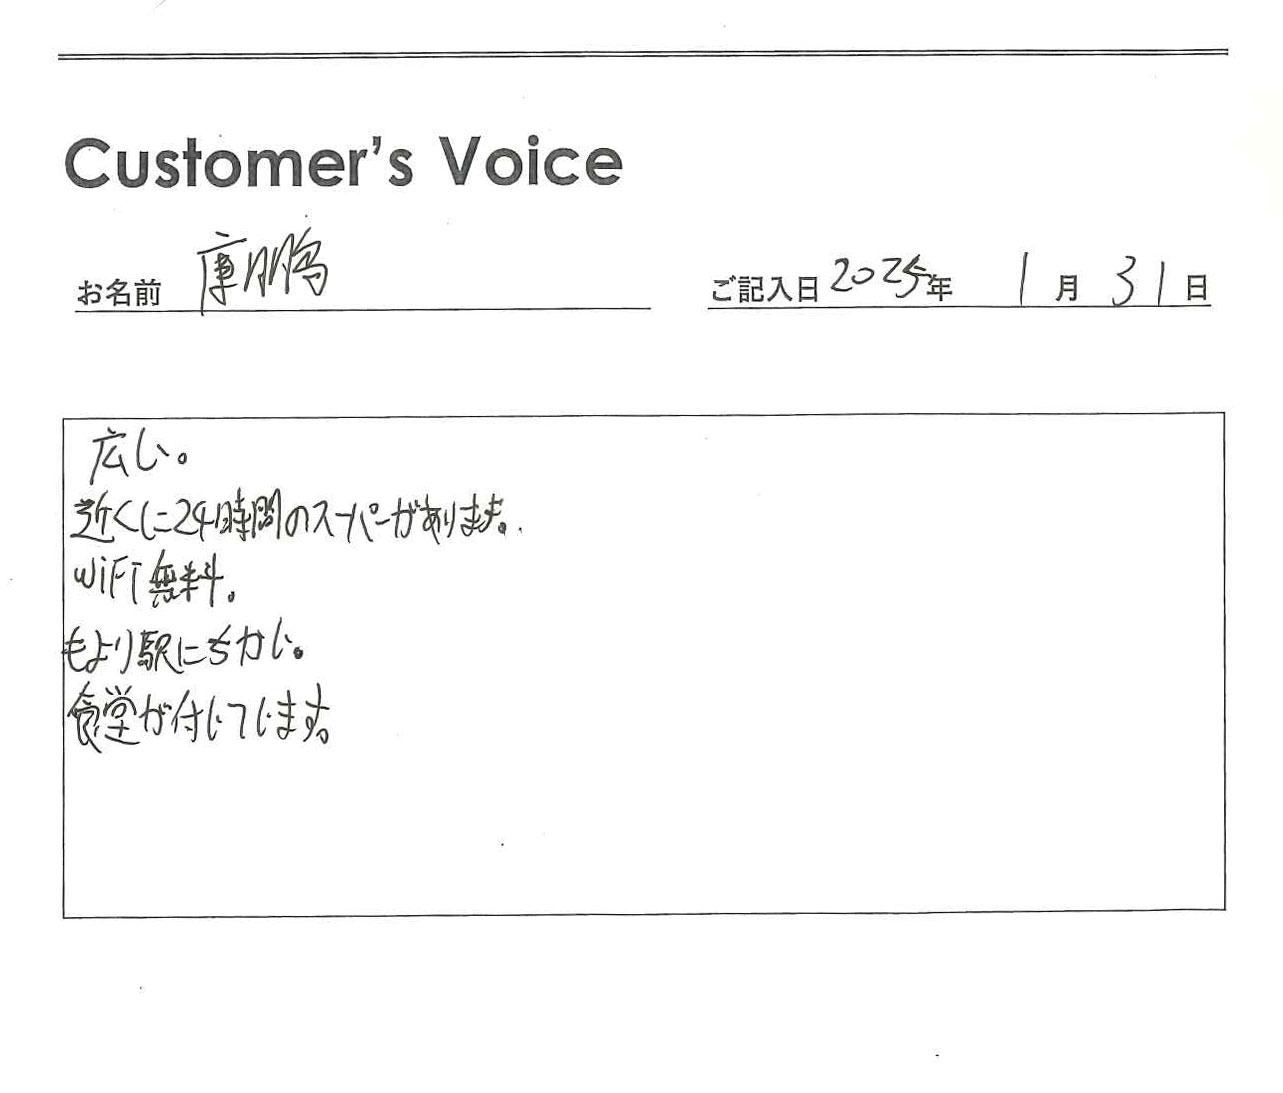 Customer's Voice
お名前 庫鵬
ご記入日 2025年 1月 31日
広い。
近くに24時間のスーパーがあります。
WiFi無料。
もより駅にちかい。
食堂が付いています。